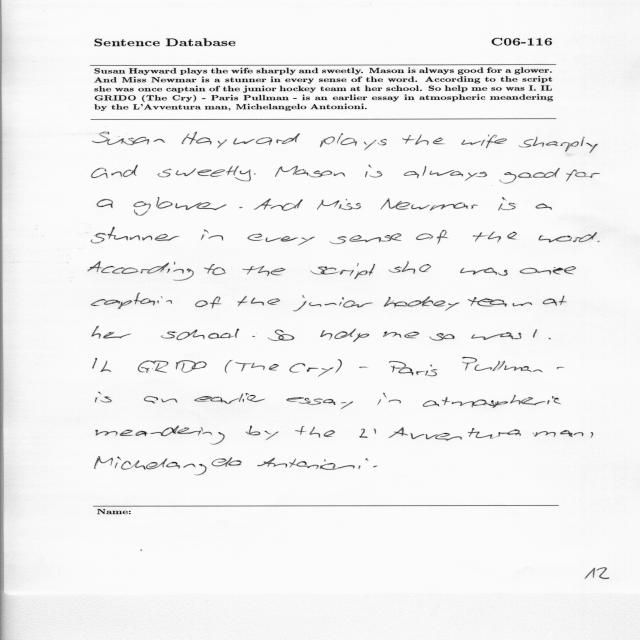 Sentence Database C06-116
Susan Hayward plays the wife sharply and sweetly. Mason is always good for a glower.
And Miss Newmar is a stunner in every sense of the word. According to the script
she was once captain of the junior hockey team at her school. So help me so was I. IL
GRIDO (The Cry) - Paris Pullman - is an earlier essay in atmospheric meandering
by the L'Avventura man, Michelangelo Antonioni.
Susan Hayward plays the wife sharply
and sweetly. Mason is always good for
a glower. And Miss Newmar is a
stunner in every sense of the word.
According to the script she was once
captain of the junior hockey team at
her school. So help me so was I.
IL GRIDO (The Cry) - Paris Pullman -
is an earlie essay in atmospheric
meandering by the L'Avventura man,
Michelangelo Antonioni.
Name:
12